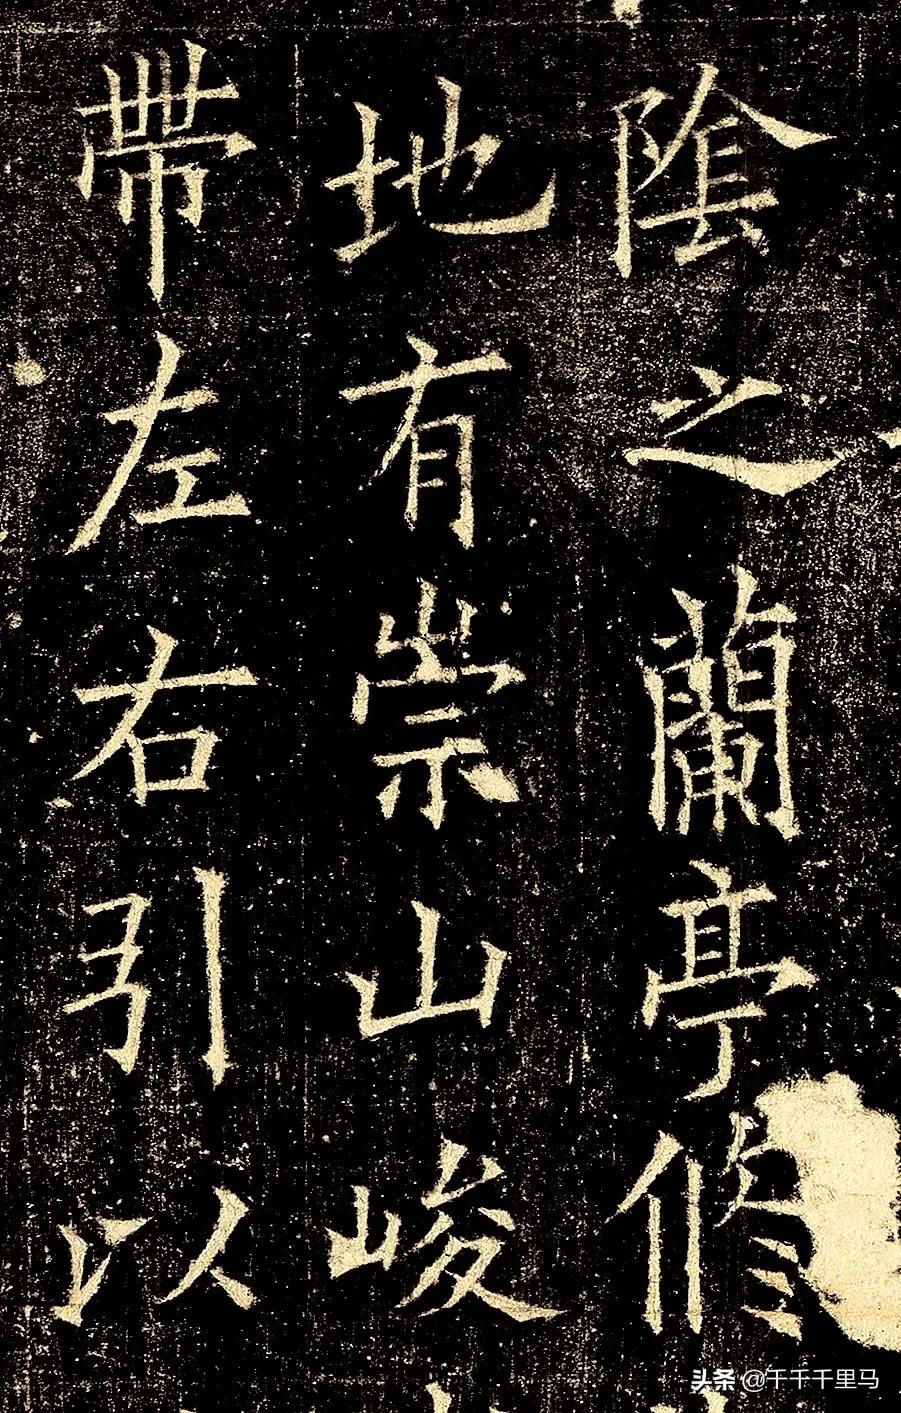 陰之蘭亭修
地有崇山峻
帶左右引以
头条 @千千千里马